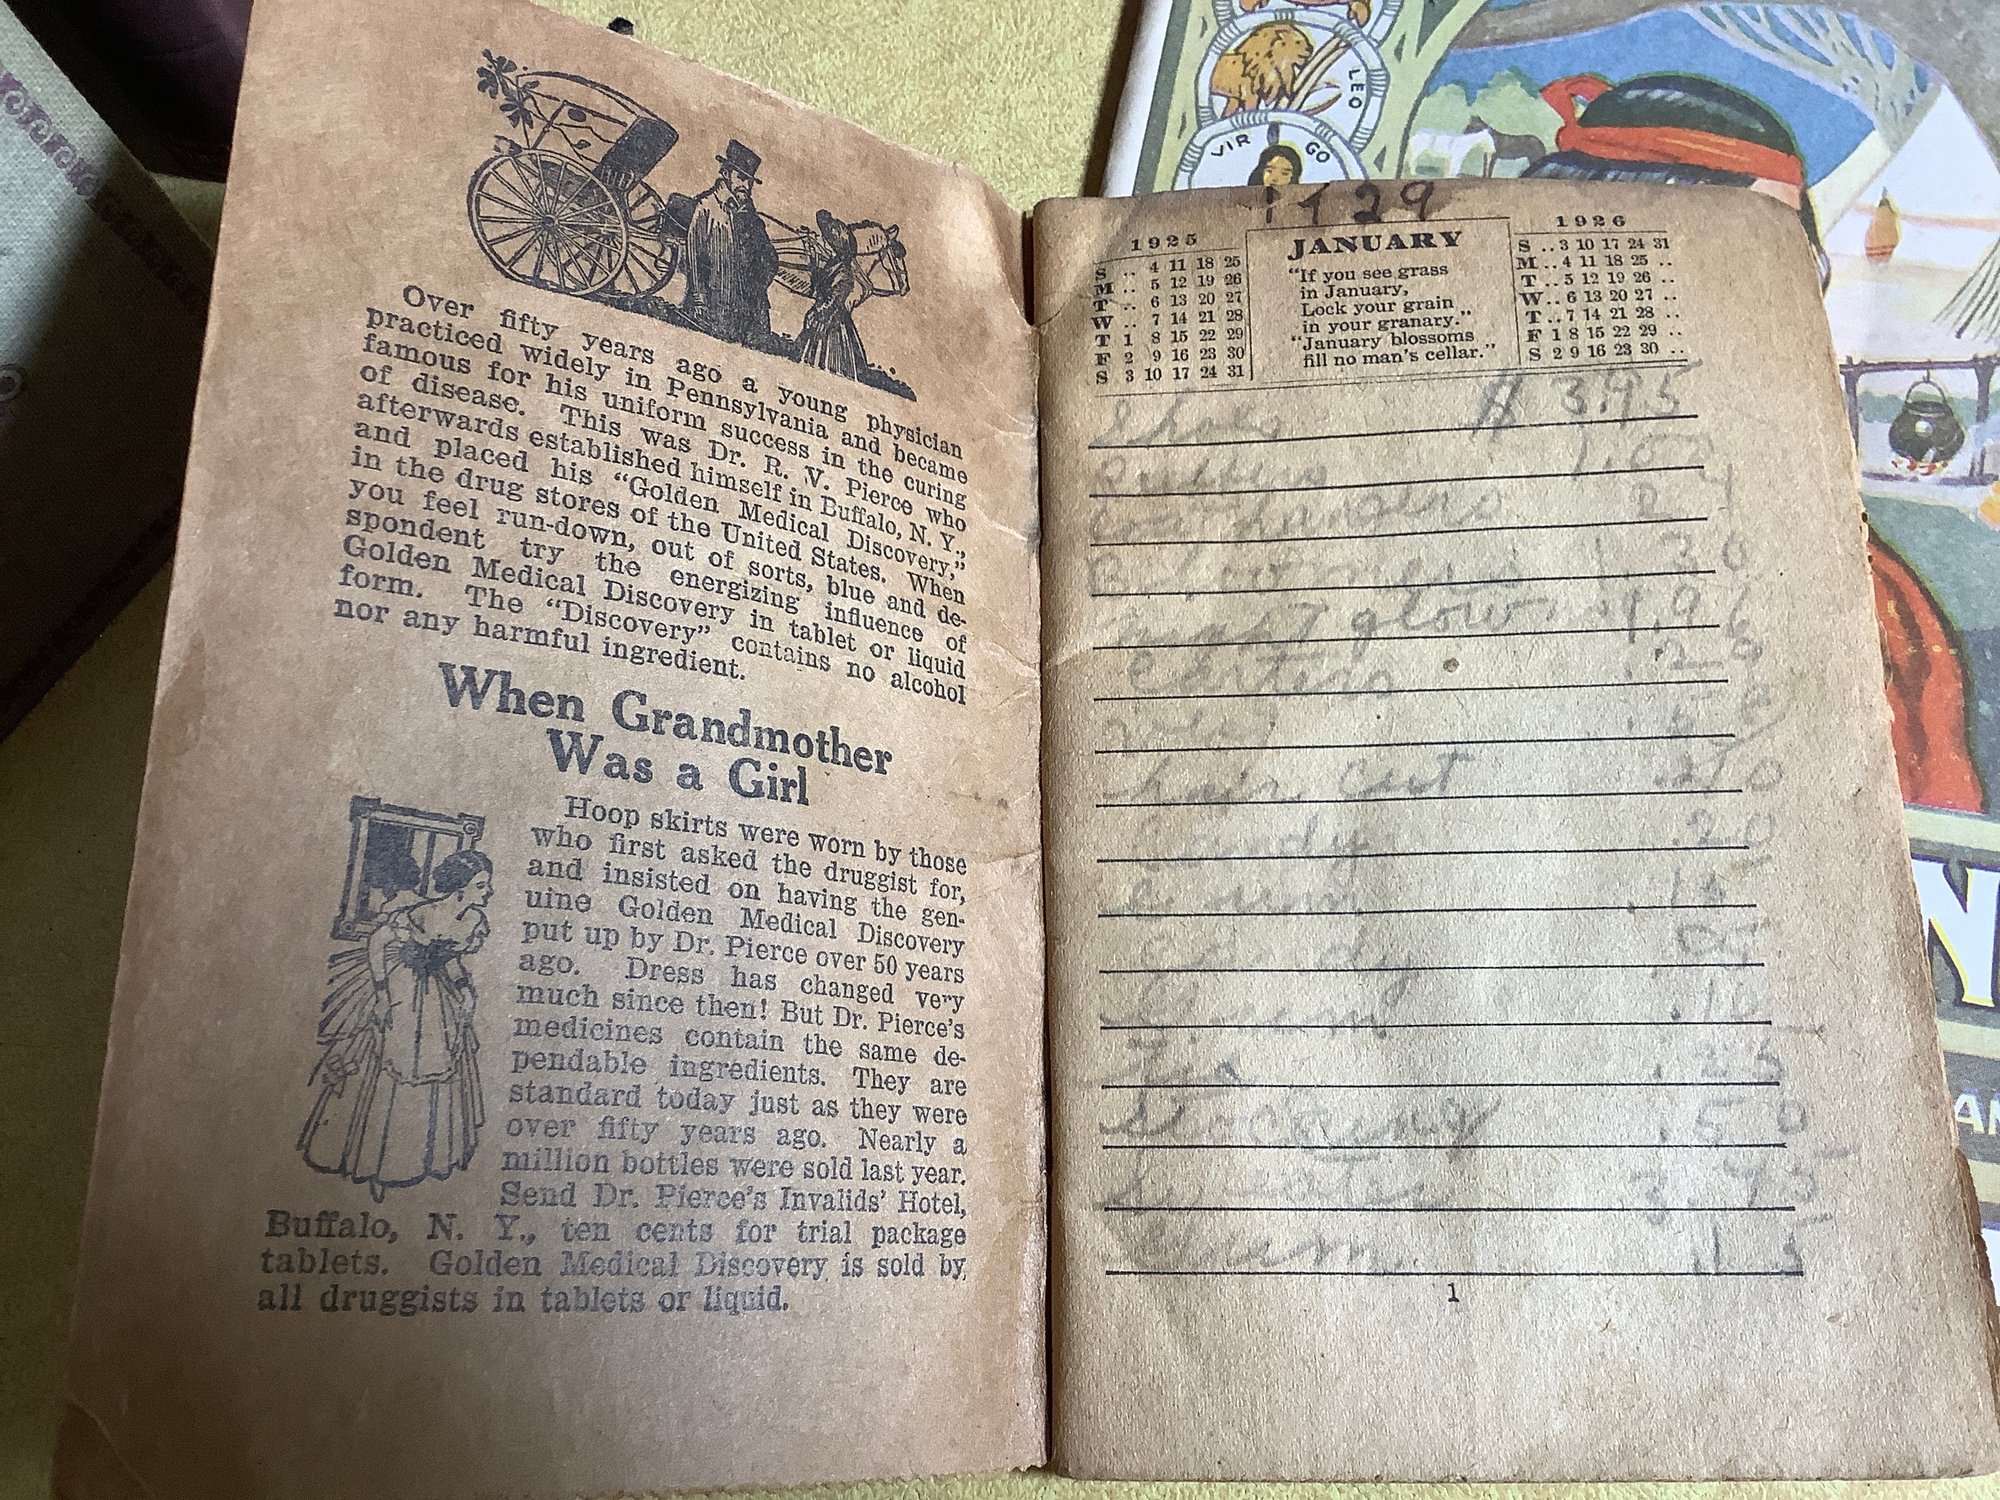 Over fifty years ago a young physician
practiced widely in Pennsylvania and became
famous for his uniform success in the curing
of disease. This was Dr. R. V. Pierce who
afterwards established himself in Buffalo, N. Y.,
and placed his "Golden Medical Discovery,"
in the drug stores of the United States. When
you feel run-down, out of sorts, blue and de-
spondent try the energizing influence of
Golden Medical Discovery in tablet or liquid
form. The "Discovery" contains no alcohol
nor any harmful ingredient.
When Grandmother
Was a Girl
Hoop skirts were worn by those
who first asked the druggist for,
and insisted on having the gen-
uine Golden Medical Discovery
put up by Dr. Pierce over 50 years
ago. Dress has changed very
much since then! But Dr. Pierce's
medicines contain the same de-
pendable ingredients. They are
standard today just as they were
over fifty years ago. Nearly a
million bottles were sold last year.
Send Dr. Pierce's Invalids' Hotel,
Buffalo, N. Y., ten cents for trial package
tablets. Golden Medical Discovery is sold by
all druggists in tablets or liquid.
1929
1925
S .. 4 11 18 25
M .. 5 12 19 26
T .. 6 13 20 27
W .. 7 14 21 28
T 1 8 15 22 29
F 2 9 16 23 30
S 3 10 17 24 31
JANUARY
"If you see grass
in January,
Lock your grain
in your granary."
"January blossoms
fill no man's cellar."
1926
S .. 3 10 17 24 31
M .. 4 11 18 25 ..
T .. 5 12 19 26 ..
W .. 6 13 20 27 ..
T .. 7 14 21 28 ..
F 1 8 15 22 29 ..
S 2 9 16 23 30 ..
Shoes $ 3.95
1.00
1.30
.28
hair cut
Candy .20
Gum
Candy
Gum .10
.25
Stocking .50
Sweater
Gum
1
LEO
VIRGO